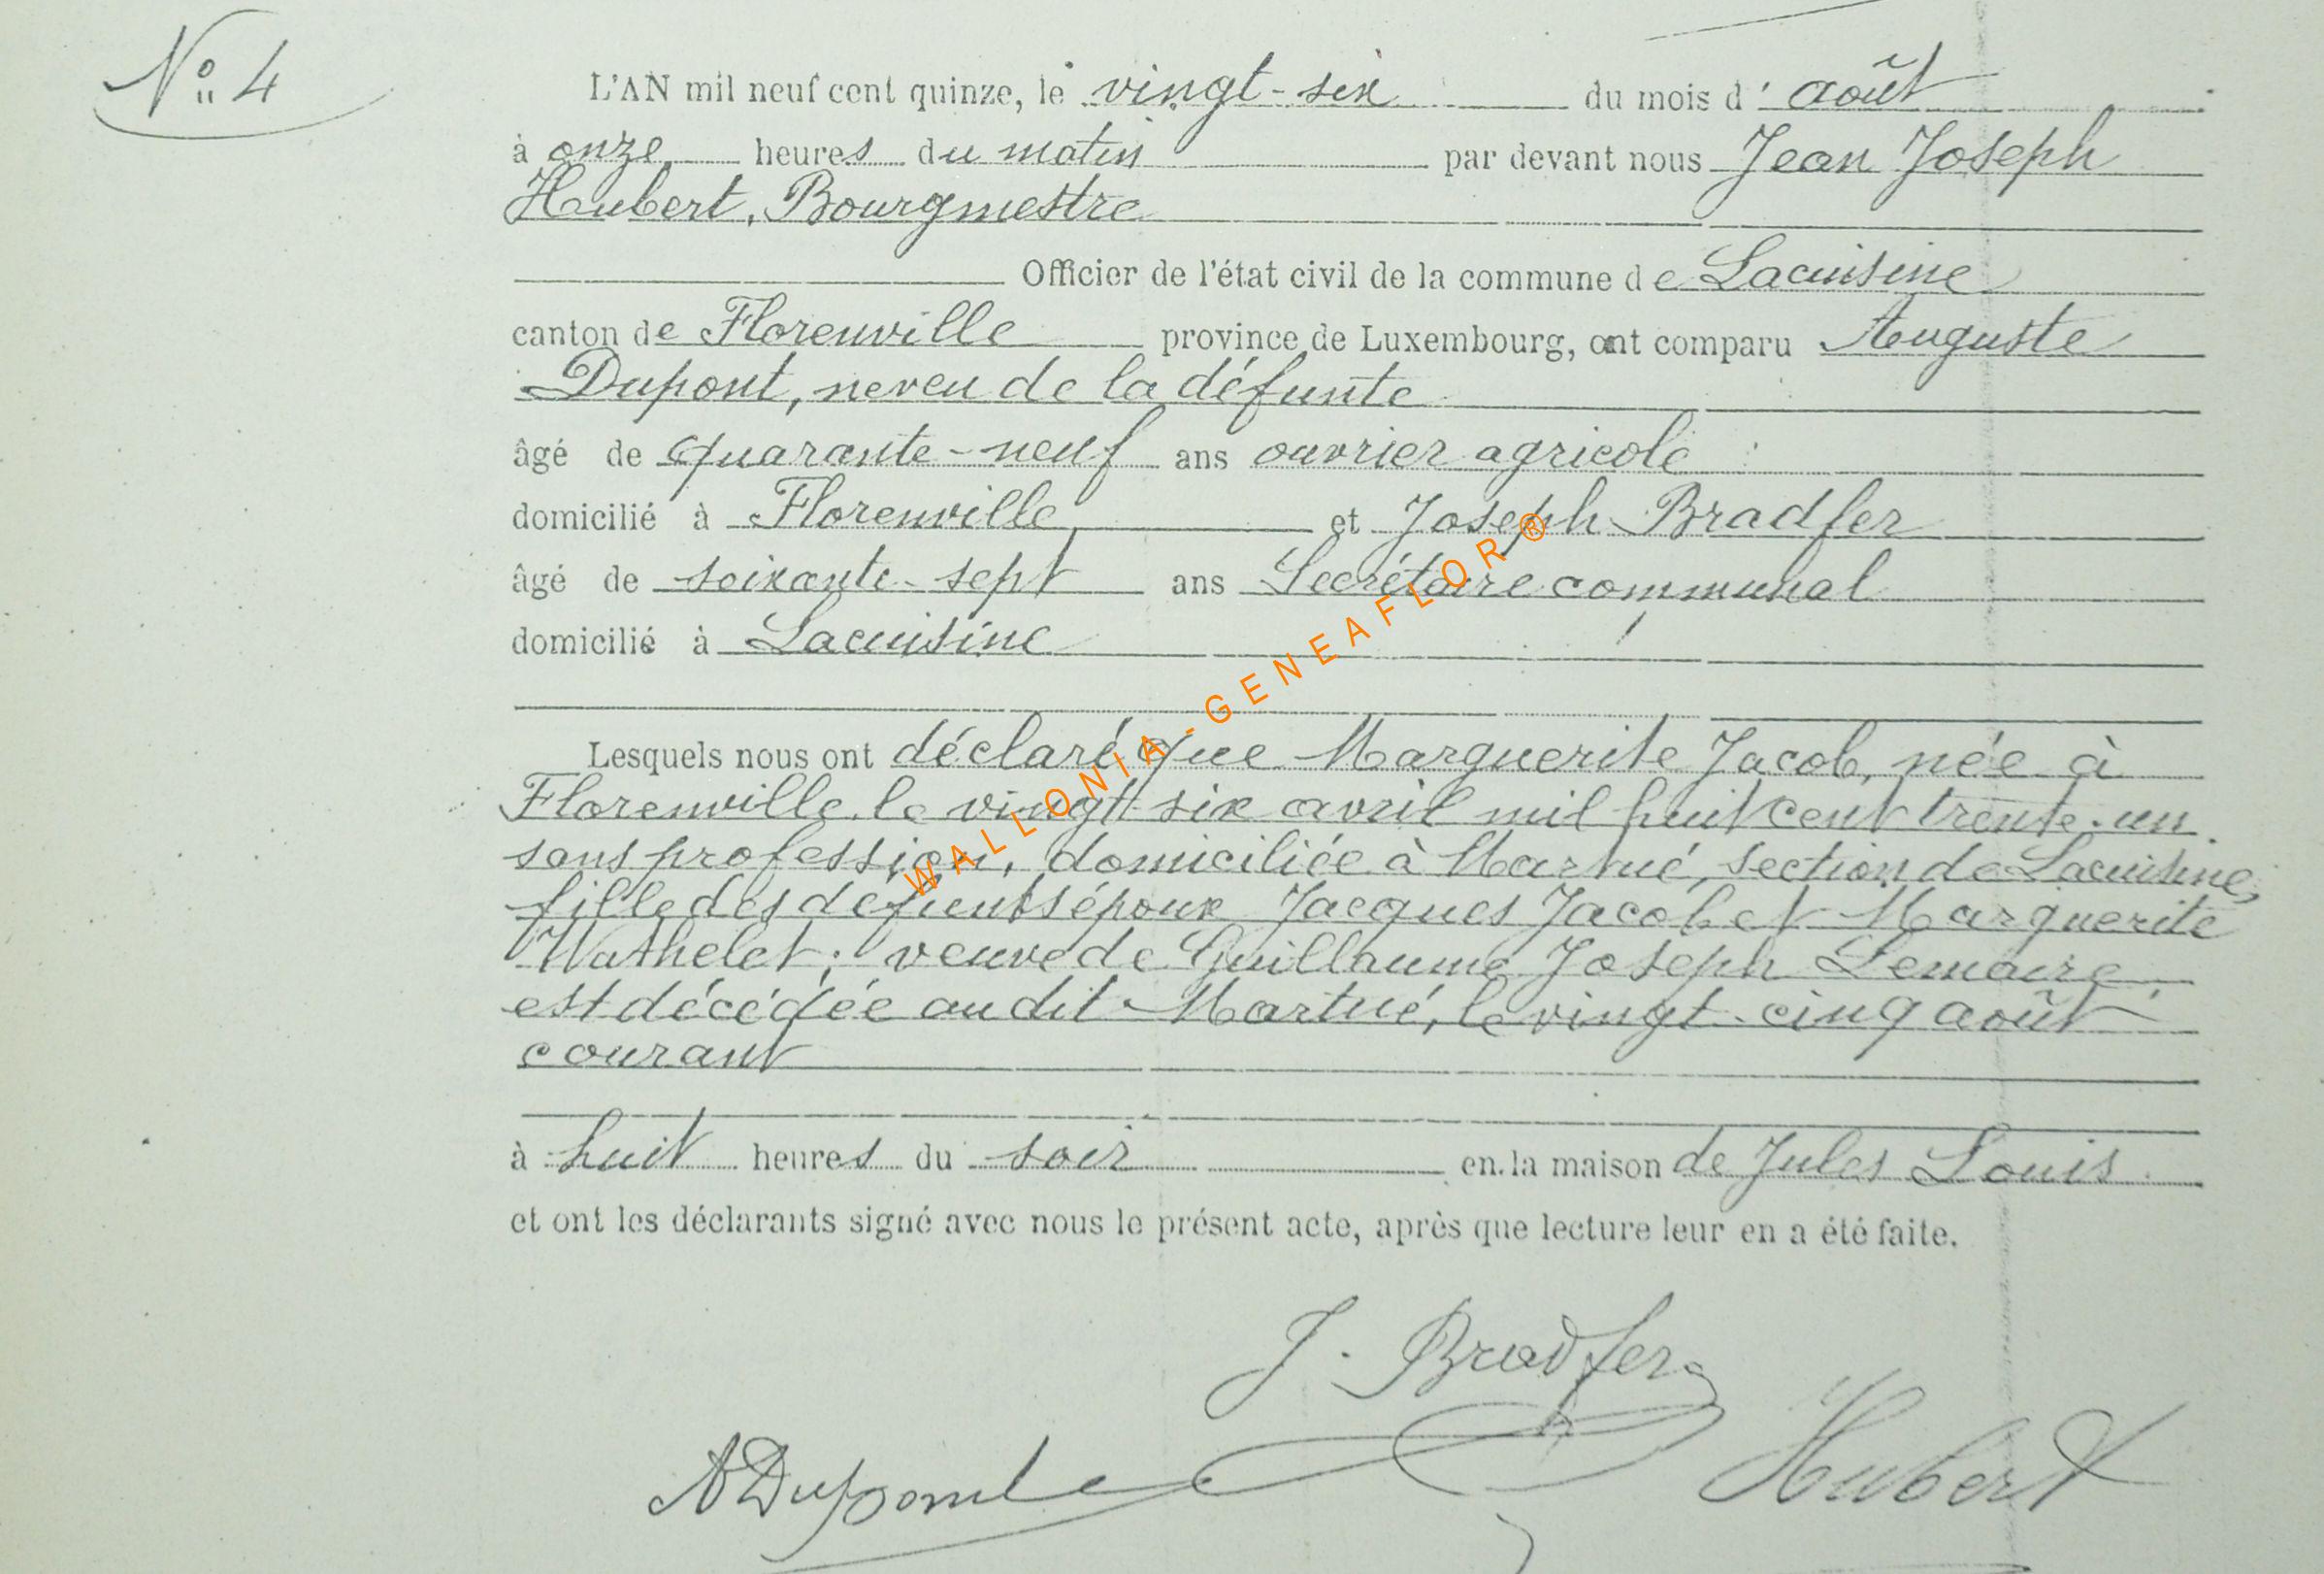 N° 4
L'AN mil neuf cent quinze, le vingt-six du mois d'août
à onze heures du matin par devant nous Jean Joseph
Hubert, Bourgmestre
Officier de l'état civil de la commune de Lacuisine
canton de Florenville province de Luxembourg, ont comparu Auguste
Dupont, neveu de la défunte
âgé de quarante-neuf ans ouvrier agricole
domicilié à Florenville et Joseph Bradfer
âgé de soixante-sept ans Secrétaire communal
domicilié à Lacuisine
Lesquels nous ont déclaré que Marguerite Jacob, née à
Florenville le vingt-six avril mil huit cent trente-un
sans profession, domiciliée à Martué, section de Lacuisine,
fille des défunts époux Jacques Jacob et Marguerite
Wathelet; veuve de Guillaume Joseph Lemaire,
est décédée au dit Martué, le vingt-cinq août
courant
à huit heures du soir en la maison de Jules Louis
et ont les déclarants signé avec nous le présent acte, après que lecture leur en a été faite.
J. Bradfer
A Dupont
Hubert
WALLONIA-GENEAFLOR®